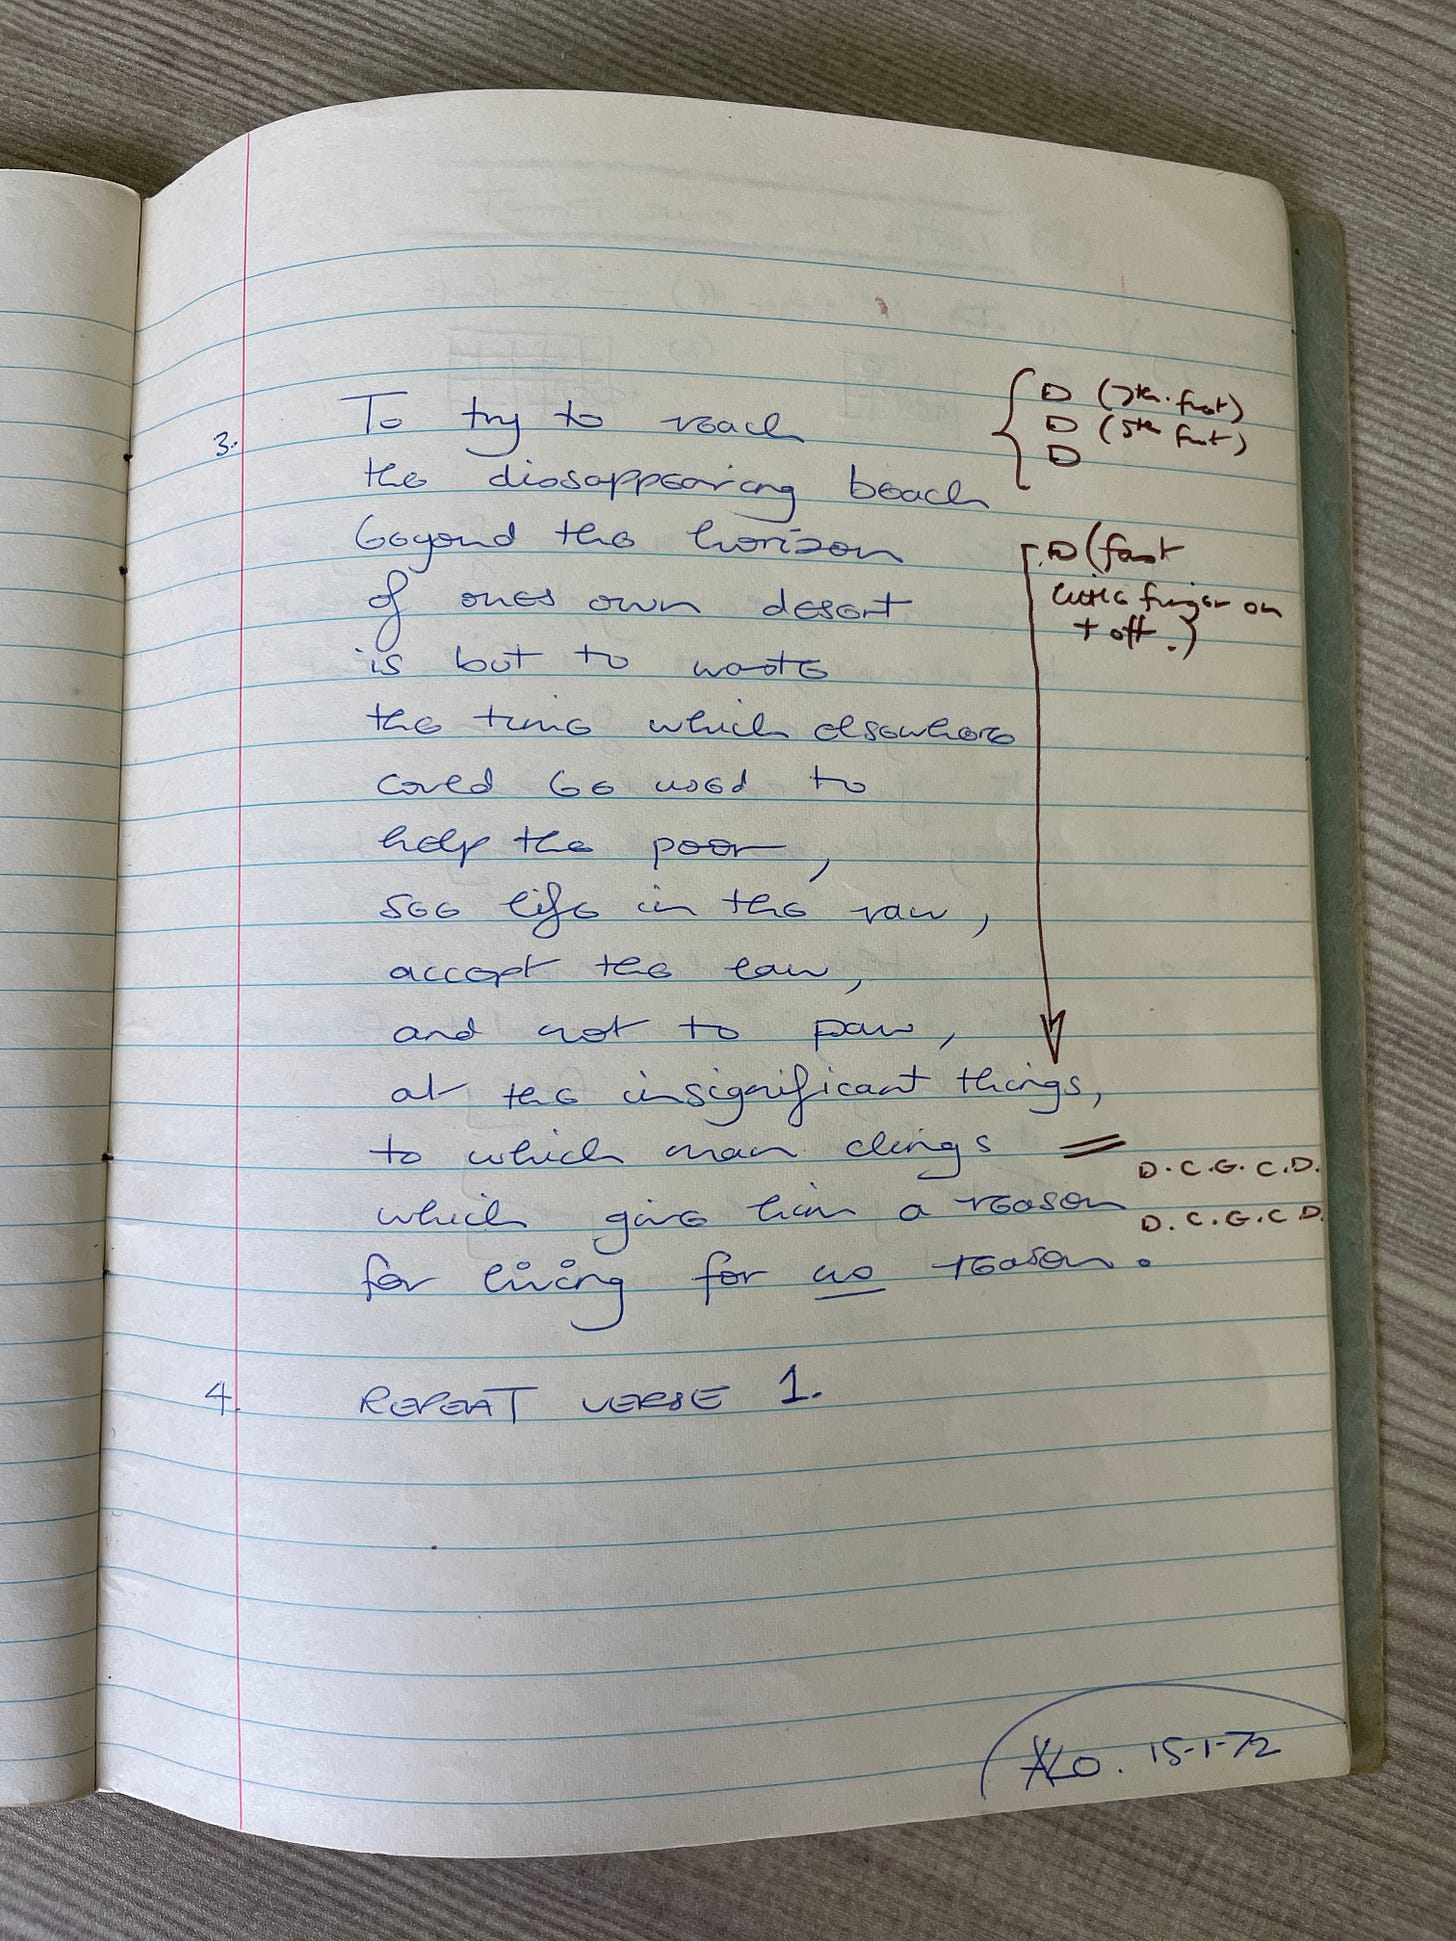 3. To try to reach
the diosappearing beach
beyond the horizon
of ones own desert
is but to waste
the time which elsewhere
could be used to
help the poor,
see life in the raw,
accept the law,
and not to paw,
at the insignificant things,
to which man clings =
which give him a reason
for living for no reason.
4. REPEAT VERSE 1.
D (7th. fret)
D (5th fret)
D
D (fast
little finger on
+ off.)
D. C. G. C. D.
D. C. G. C D.
15-1-72